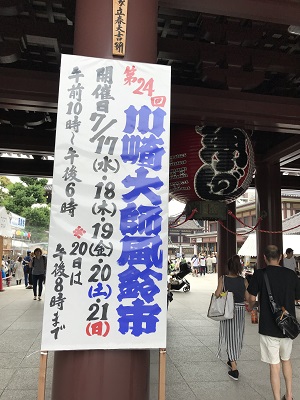 立春大吉
第24回
川崎大師風鈴市
開催日7/17(水)・18(木)・19(金)・20(土)・21(日)
午前10時～午後6時
※20日は
午後8時まで